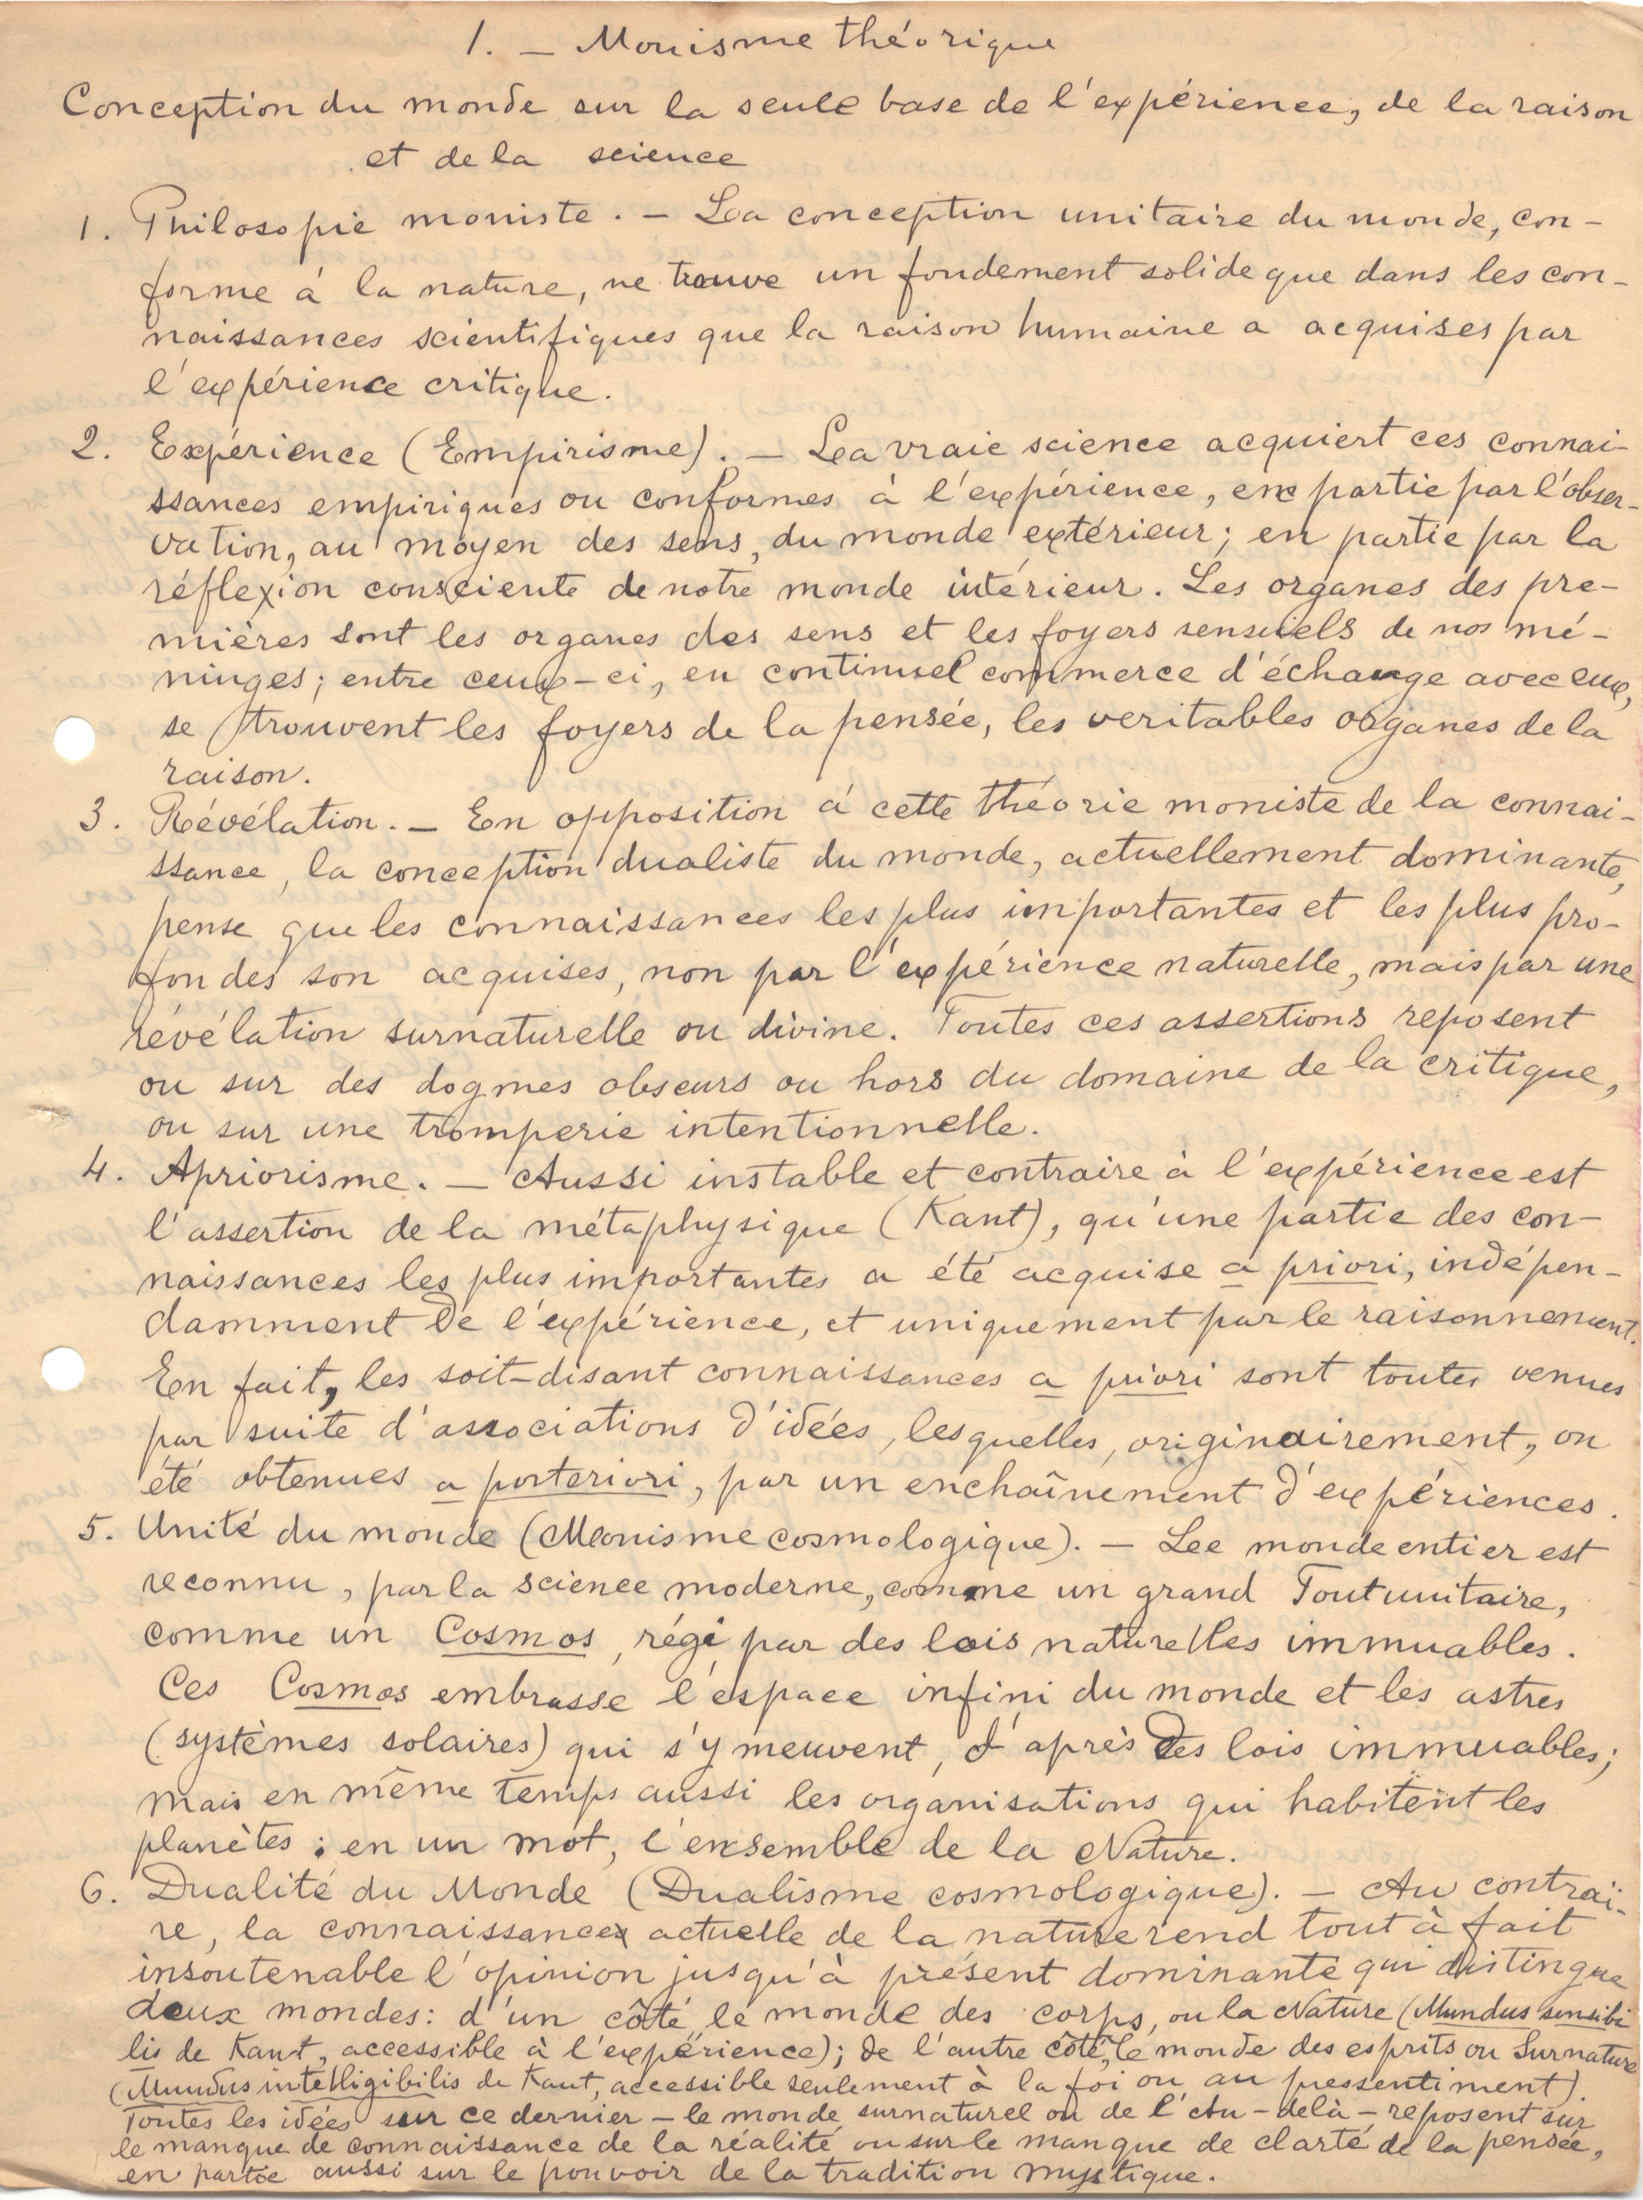 1. — Monisme théorique
Conception du monde sur la seule base de l'expérience, de la raison
et de la science
1. Philosopie moniste. — La conception unitaire du monde, con-
forme à la nature, ne trouve un fondement solide que dans les con-
naissances scientifiques que la raison humaine a acquises par
l'expérience critique.
2. Expérience (Empirisme). — La vraie science acquiert ces connai-
ssances empiriques ou conformes à l'expérience, en partie par l'obser-
vation, au moyen des sens, du monde extérieur; en partie par la
réflexion consciente de notre monde intérieur. Les organes des pre-
mières sont les organes des sens et les foyers sensuels de nos mé-
ninges; entre ceux-ci, en continuel commerce d'échange avec eux,
se trouvent les foyers de la pensée, les veritables organes de la
raison.
3. Révélation. — En opposition à cette théorie moniste de la connai-
ssance, la conception dualiste du monde, actuellement dominante,
pense que les connaissances les plus importantes et les plus pro-
fondes son acquises, non par l'expérience naturelle, mais par une
révélation surnaturelle ou divine. Toutes ces assertions reposent
ou sur des dogmes obscurs ou hors du domaine de la critique,
ou sur une tromperie intentionnelle.
4. Apriorisme. — Aussi instable et contraire à l'expérience est
l'assertion de la métaphysique (Kant), qu'une partie des con-
naissances les plus importantes a été acquise a priori, indépen-
damment de l'expérience, et uniquement par le raisonnement.
En fait, les soit-disant connaissances a priori sont toutes venues
par suite d'associations d'idées, lesquelles, originairement, on
été obtenues a posteriori, par un enchaînement d'expériences.
5. Unité du monde (Monisme cosmologique). — Lee monde entier est
reconnu, par la science moderne, comme un grand Tout unitaire,
comme un Cosmos, régi par des lois naturelles immuables.
Ces Cosmos embrasse l'espace infini du monde et les astres
(systèmes solaires) qui s'y meuvent, d'après des lois immuables;
mais en même temps aussi les organisations qui habitent les
planètes; en un mot, l'ensemble de la Nature.
6. Dualité du Monde (Dualisme cosmologique). — Au contrai-
re, la connaissance actuelle de la nature rend tout à fait
insoutenable l'opinion jusqu'à présent dominante qui distingue
deux mondes: d'un côté le monde des corps, ou la Nature (Mundus sensibi
lis de Kant, accessible à l'expérience); de l'autre côté, le monde des esprits ou Surnature
(Mundus intelligibilis de Kant, accessible seulement à la foi ou au pressentiment).
Toutes les idées sur ce dernier — le monde surnaturel ou de l'Au-delà — reposent sur
le manque de connaissance de la réalité ou sur le manque de clarté de la pensée,
en partie aussi sur le pouvoir de la tradition mystique.